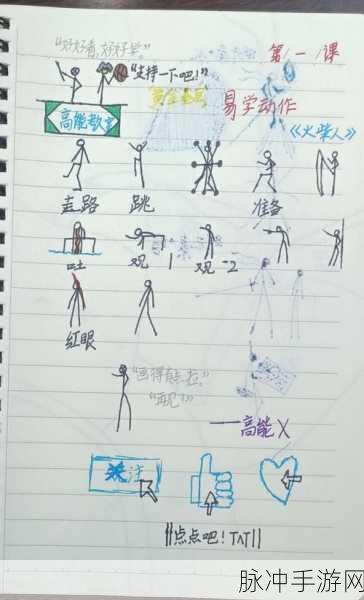 "好好看,好好学。"
第一课
"支持一下吧!"
黄金
易学动作
高能教室
《火柴人》
走路 跳 准备
吐 观-1 观-2
红眼
"画得有点拉。"
"再见!"
——高能X
关注
||点点吧!TAT||
脉冲手游网